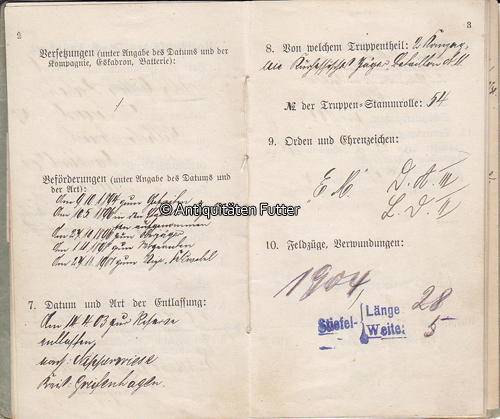 2
Versetzungen (unter Angabe des Datums und der
Kompagnie, Eskadron, Batterie):
/
Beförderungen (unter Angabe des Datums und
der Art):
Am zum Gefreiten
Am 10.5 in die
aufgenommen
Am zum Oberjäger
Am zum Sergeanten
Am zum Vize-Feldwebel
7. Datum und Art der Entlassung:
Am 14.4.03 zur Reserve
entlassen,
nach
Kreis Greifenhagen.
3
8. Von welchem Truppentheil: 2 Kompag-
nie Jäger-Bataillon N. 11
№ der Truppen-Stammrolle: 54
9. Orden und Ehrenzeichen:
D. A. III
L. D. II
10. Feldzüge, Verwundungen:
1904
Stiefel- Länge 28
Weite: 5
© Antiquitäten Futter